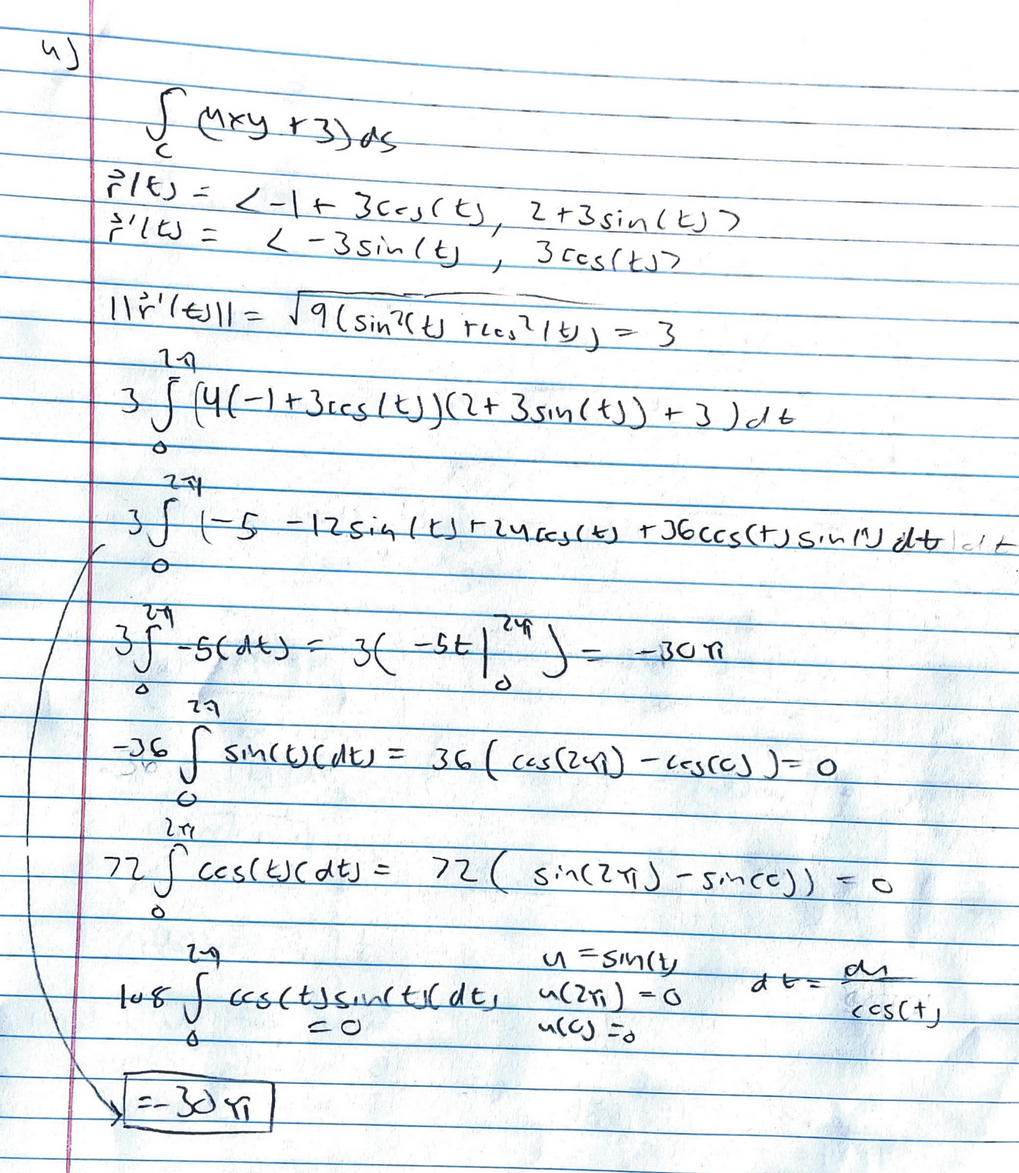 4)
∫_C (4xy + 3) ds
r⃗(t) = <-1 + 3cos(t), 2+3sin(t)>
r⃗'(t) = <-3sin(t), 3cos(t)>
||r⃗'(t)|| = √9(sin²(t) + cos²(t)) = 3
3 ∫_0^{2π} (4(-1+3cos(t))(2+3sin(t)) + 3) dt
3 ∫_0^{2π} (-5 -12sin(t) + 24cos(t) + 36cos(t)sin(t) dt
3 ∫_0^{2π} -5(dt) = 3( -5t |_0^{2π} ) = -30π
-36 ∫_0^{2π} sin(t)(dt) = 36 ( cos(2π) - cos(0) ) = 0
72 ∫_0^{2π} cos(t)(dt) = 72 ( sin(2π) - sin(0)) = 0
108 ∫_0^{2π} cos(t)sin(t)(dt) = 0 u = sin(t) u(2π) = 0 u(0) = 0 dt = du/cos(t)
= -30π